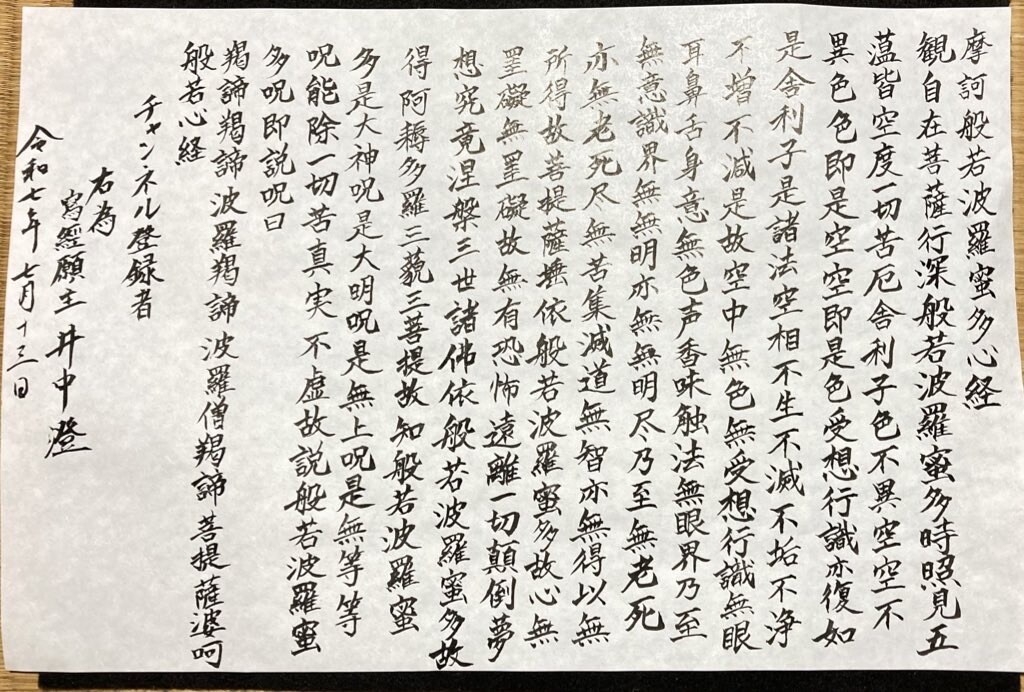 摩訶般若波羅蜜多心経
観自在菩薩行深般若波羅蜜多時照見五
蘊皆空度一切苦厄舎利子色不異空空不
異色色即是空空即是色受想行識亦復如
是舎利子是諸法空相不生不滅不垢不浄
不増不減是故空中無色無受想行識無眼
耳鼻舌身意無色声香味触法無眼界乃至
無意識界無無明亦無無明尽乃至無老死
亦無老死尽無苦集滅道無智亦無得以無
所得故菩提薩埵依般若波羅蜜多故心無
罣礙無罣礙故無有恐怖遠離一切顛倒夢
想究竟涅槃三世諸佛依般若波羅蜜多故
得阿耨多羅三藐三菩提故知般若波羅蜜
多是大神呪是大明呪是無上呪是無等等
呪能除一切苦真実不虚故説般若波羅蜜
多呪即説呪曰
羯諦羯諦波羅羯諦波羅僧羯諦菩提薩婆呵
般若心経
チャンネル登録者
右為
寫經願主 井中澄
令和七年七月十三日